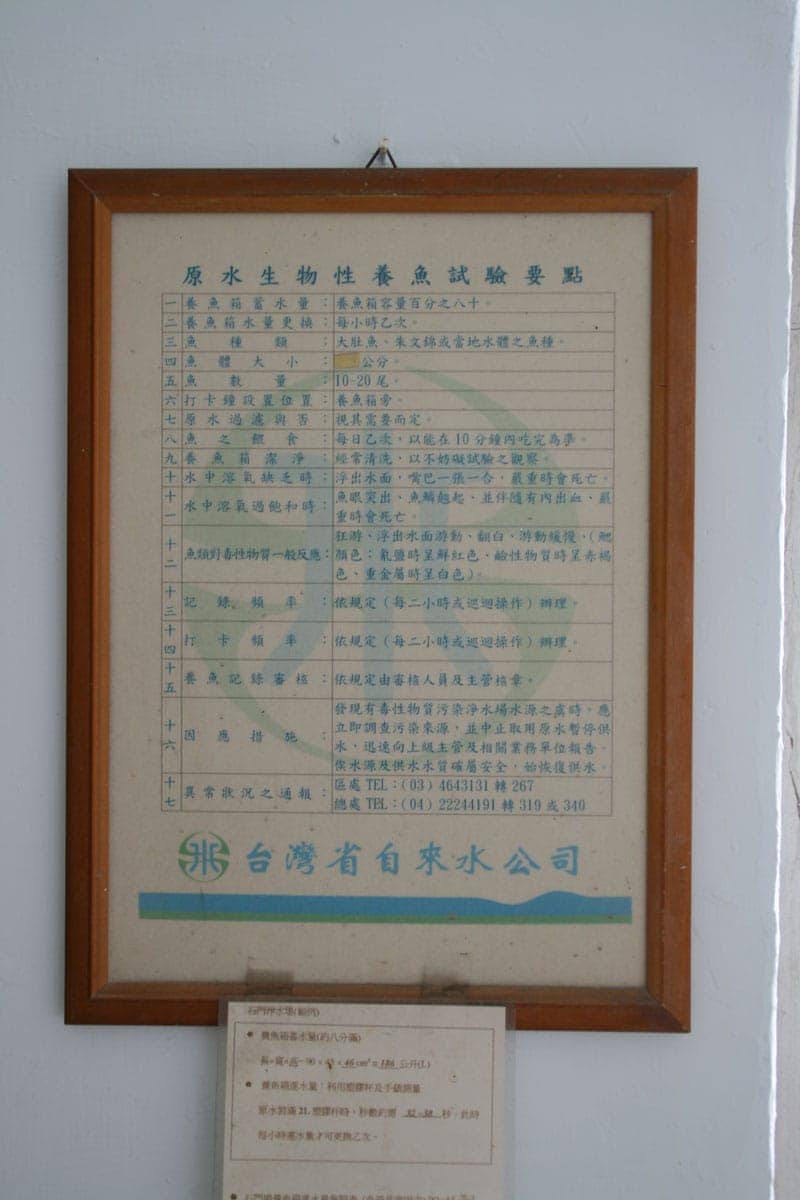 原水生物性養魚試驗要點
一 養魚箱蓄水量：養魚箱容量百分之八十。
二 養魚箱水量更換：每小時乙次。
三 魚種類：大肚魚、朱文錦或當地水體之魚種。
四 魚體大小：公分。
五 魚數量：10-20尾。
六 打卡鐘設置位置：養魚箱旁。
七 原水過濾與否：視其需要而定。
八 魚之餵食：每日乙次，以能在10分鐘內吃完為準。
九 養魚箱潔淨：經常清洗，以不妨礙試驗之觀察。
十 水中溶氧缺乏時：浮出水面，嘴巴一張一合，嚴重時會死亡。
十一 水中溶氧過飽和時：魚眼突出、魚鱗翹起、並伴隨有內出血、嚴
重時會死亡。
十二 魚類對毒性物質一般反應：狂游、浮出水面游動、翻白，游動緩慢，(鰓
顏色：氰鹽時呈鮮紅色、鹼性物質時呈赤褐
色、重金屬時呈白色)。
十三 記錄頻率：依規定(每二小時或巡迴操作)辦理。
十四 打卡頻率：依規定(每二小時或巡迴操作)辦理。
十五 養魚記錄審核：依規定由審核人員及主管核章。
十六 因應措施：發現有毒性物質污染淨水場水源之虞時，應
立即調查污染來源，並中止取用原水暫停供
水，迅速向上級主管及相關業務單位報告。
俟水源及供水水質確屬安全，始恢復供水。
十七 異常狀況之通報：區處TEL：(03) 4643131 轉 267
總處TEL：(04) 22244191 轉 319 或 340
台灣省自來水公司
石門淨水場(範例)
養魚箱蓄水量(約八分滿)
長×寬×高= 90 × × 46 cm³ = 186 公升(L)
養魚箱進水量：利用塑膠杯及手錶測量
原水裝滿2L塑膠杯時，秒數約需 秒，此時
每小時進水量才可更換乙次。